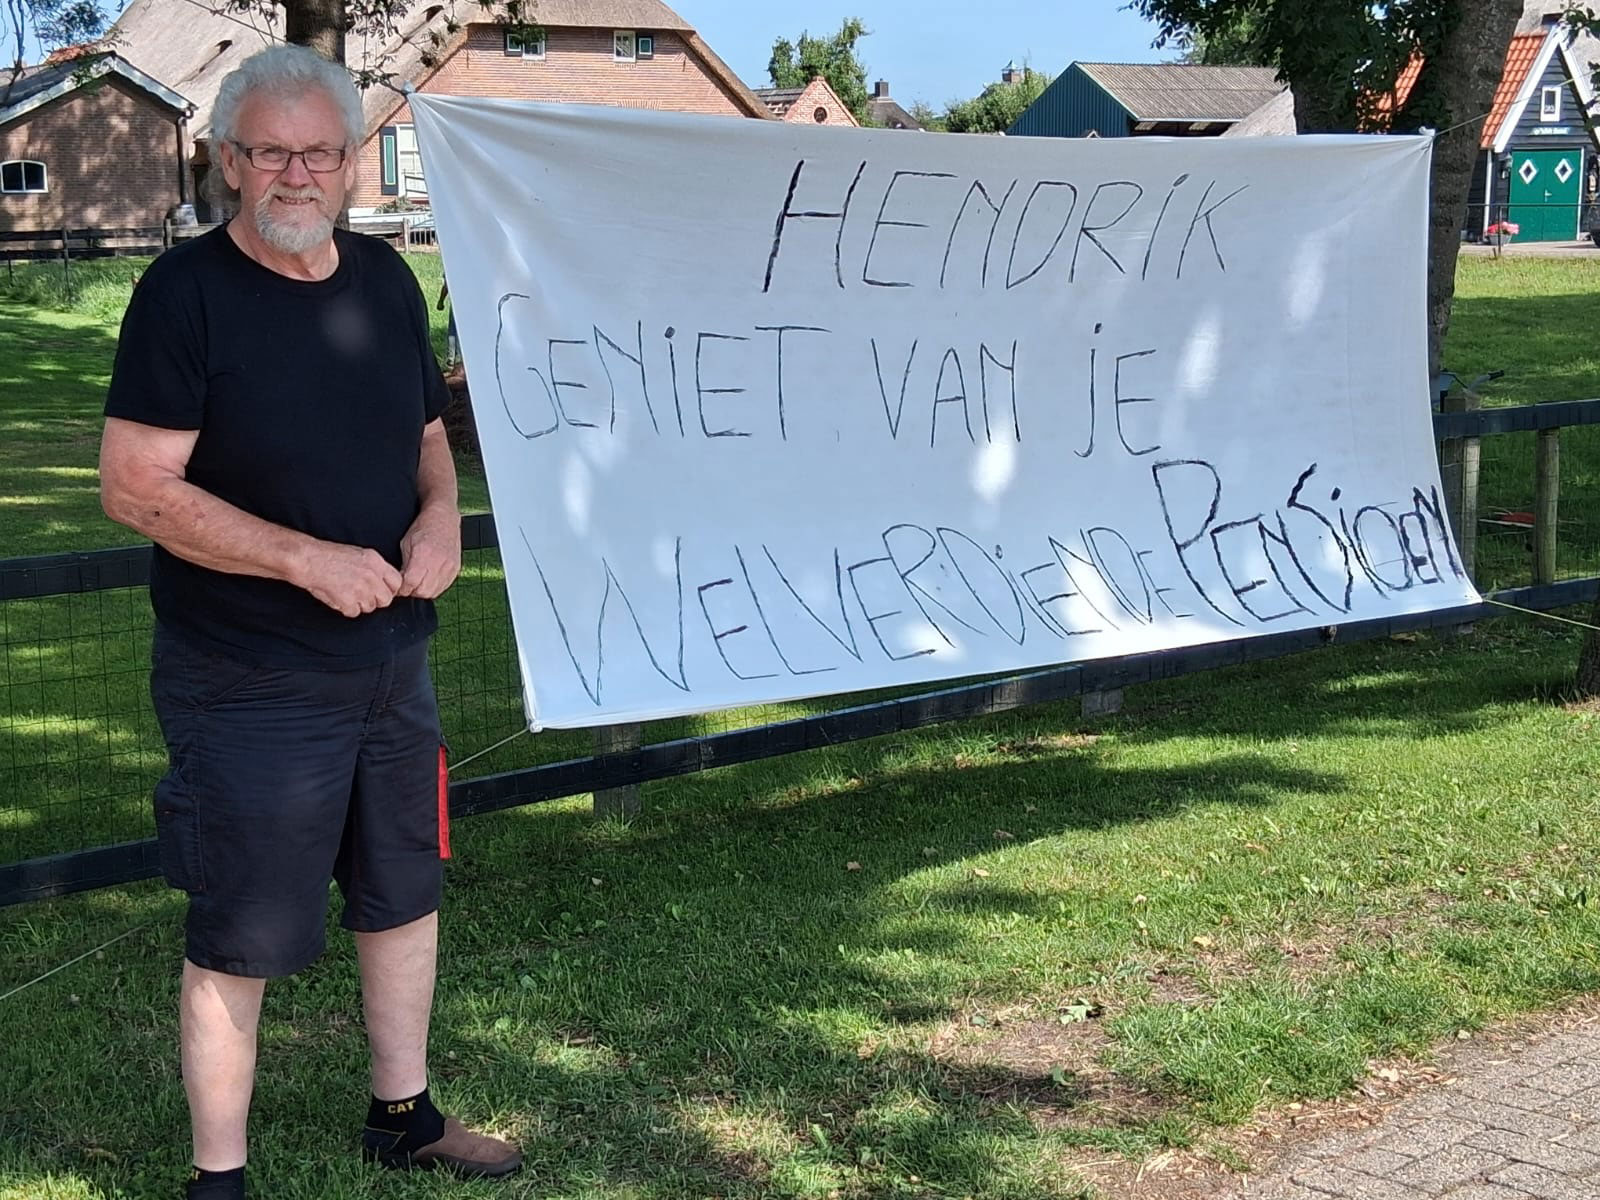 HENDRIK
GENIET VAN jE
WELVERDIENDE PENSIOEN
CAT